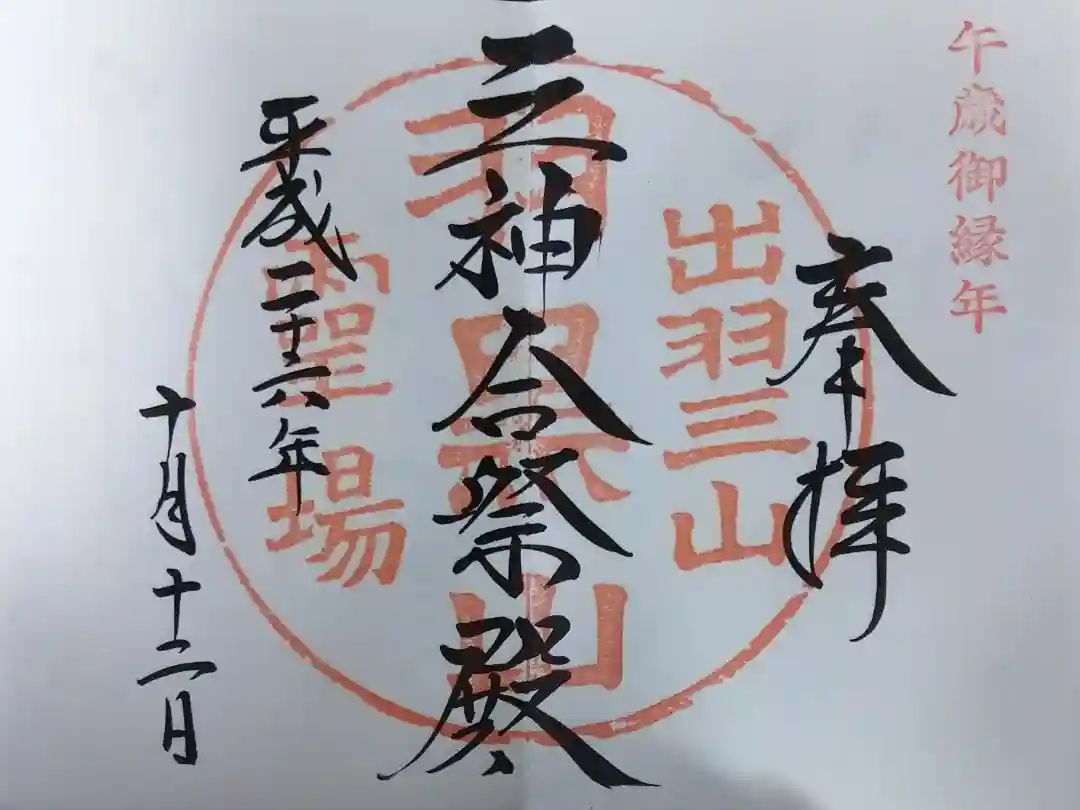 午歳御縁年
奉拝
出羽三山
三神合祭殿
羽黒山
霊場
平成二十六年
十月十二日